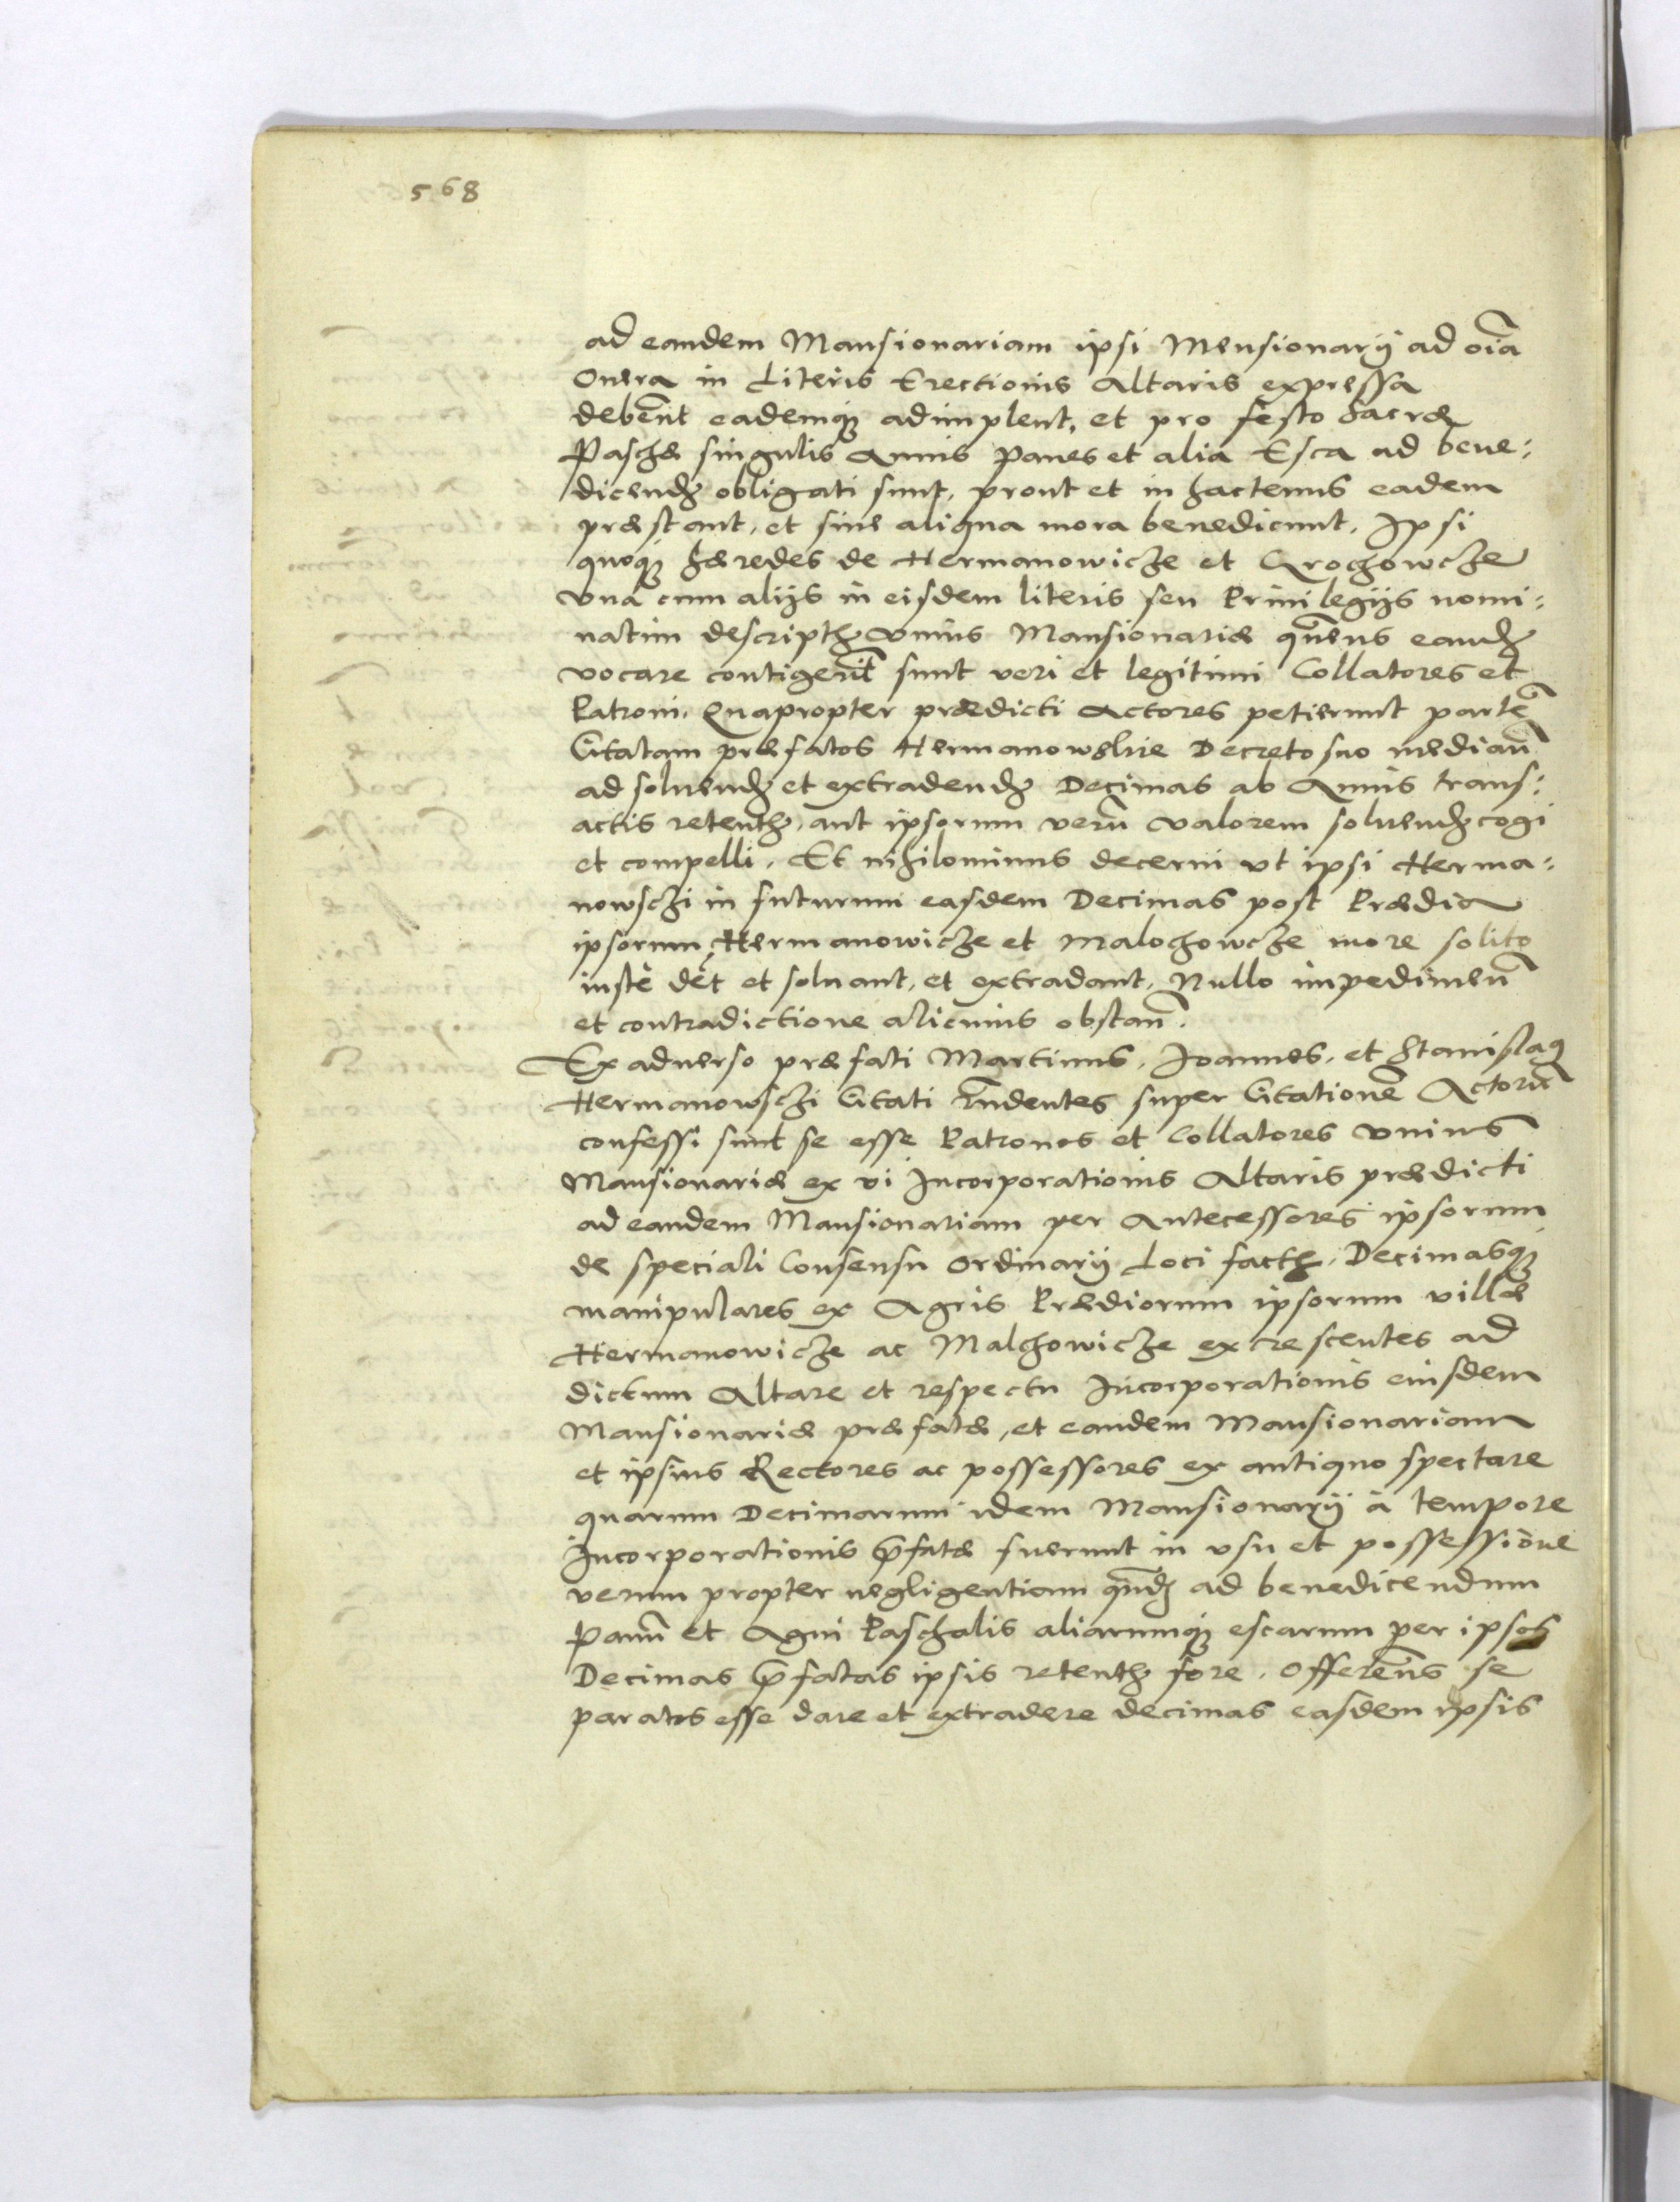 568
ad eandem Mansionariam ipsi Mensionarij ad oīa
Onera in Literis Erectionis Altaris expressa
debēnt eademq; adimplent, et pro festo Sacræ
Paschæ singulis Annis panes et alia Esca ad bene:
dicend; obligati sunt, prout et in hactenus eadem
præstant, et sine aliqua mora benedicunt, Ipsi
quoq; hæredes de Hermanowicze et Grochowcze
vna cum alijs in eisdem literis seu Priuilegijs nomi:
natim descripth; vnius Mansionariæ qūens eand;
vocare contigerīt sunt veri et legitimi Collatores et
Patroni, Quapropter prædicti Actores petierunt partē
Citatam præfatos Hermanowskie Decreto suo mediañ
ad soluend; et extradend; Decimas ab Annis trans:
actis retenth; aut ipsorum verū valorem soluend; cogi
et compelli. Et nihilominus decerni vt ipsi Herma:
nowschi in futurum easdem Decimas post Prædia
ipsorum Hermanowicze et Malochowcze more solito
iustè dēt et soluant, et extradant, Nullo impedimeñ
et contradictione alicuius obstañ.
Ex aduerso præfati Martinus, Joannes, et Stanislaq
Hermanowschi Citati rñdentes super Citationē Actorū
confessi sunt se esse Patronos et Collatores vnius
Mansionariæ ex vi Incorporationis Altaris prædicti
ad eandem Mansionariam per Antecessores ipsorum
de speciali Consensu Ordinarij Loci facth; Decimasq;
manipulares ex Agris Prædiorum ipsorum villæ
Hermanowicze ac Malchowicze excrescentes ad
dictum Altare et respectu Incorporationis eiusdem
Mansionariæ præfatæ, et eandem Mansionariam
et ipsius Rectores ac possessores ex antiquo spectare
quarum Decimarum idem Mansionarij à tempore
Incorporationis p̄fatæ fuerunt in vsu et possessione
verum propter negligentiam quād; ad benedicendum
Panū et Agni Paschalis aliarumq; escarum per ipsos
Decimas p̄fatas ipsis retenth; fore. Offerēns se
paratos esse dare et extradere decimas easdem ipsis